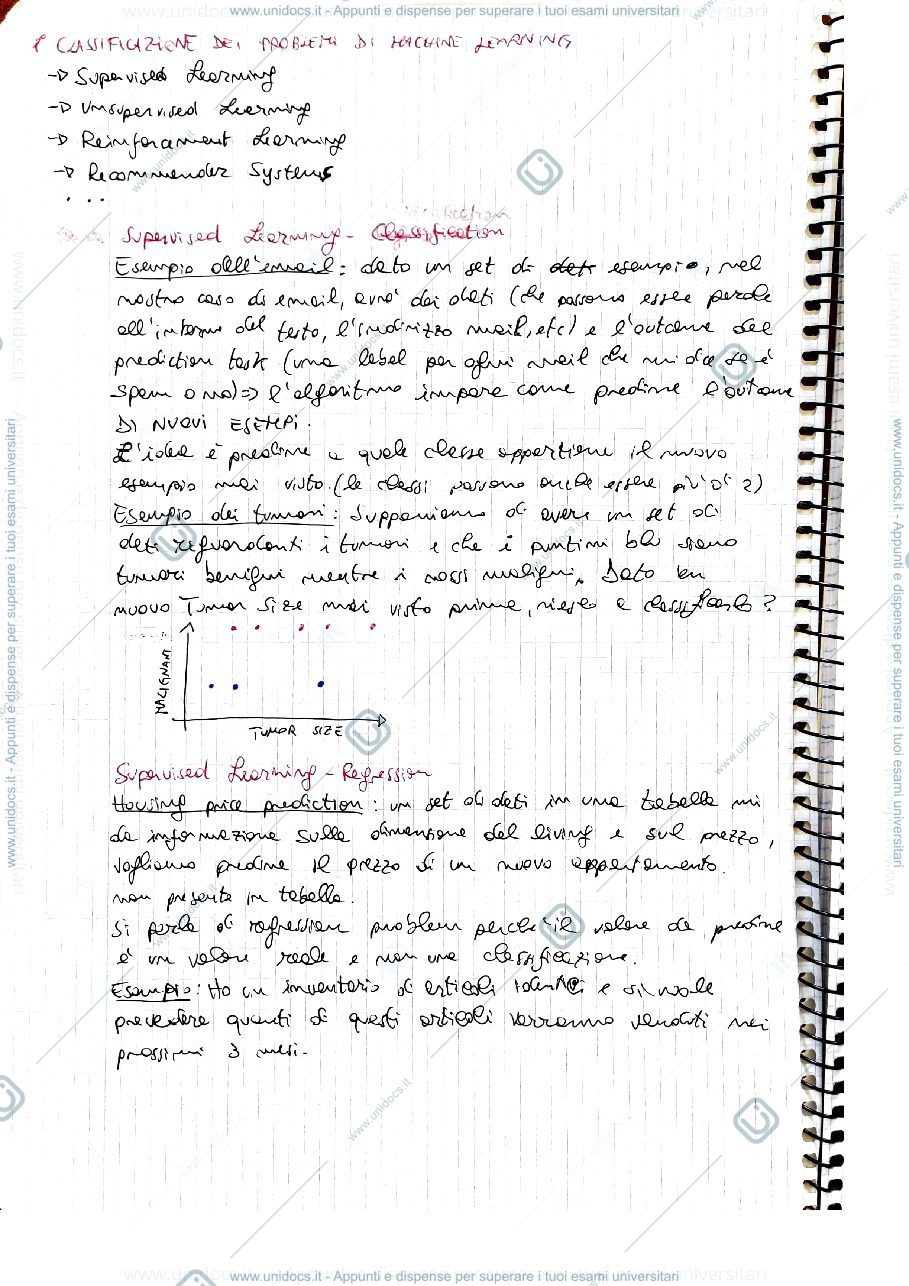 www.unidocs.it - Appunti e dispense per superare i tuoi esami universitari
CLASSIFICAZIONE DEI PROBLEMI DI MACHINE LEARNING
-> Supervised Learning
-> Unsupervised Learning
-> Reinforcement Learning
-> Recommender Systems
...
Supervised Learning - Classification
Esempio dell'email: dato un set di dati esempio, nel
nostro caso di email, avrò dei dati (che possono essere parole
all'interno del testo, l'indirizzo mail, etc) e l'outcome del
prediction task (una label per ogni mail che mi dice se è
spam o no) => l'algoritmo impara come predirne l'outcome
DI NUOVI ESEMPI.
L'idea è predirne a quale classe appartiene il nuovo
esempio mai visto. (le classi possono anche essere più di 2)
Esempio dei tumori: Supponiamo di avere un set di
dati riguardanti i tumori e che i puntini blu siano
tumori benigni mentre i rossi maligni. Dato un
nuovo Tumor Size mai visto prima, riesco a classificarlo?
MALIGNANT
TUMOR SIZE
Supervised Learning - Regression
Housing price prediction: un set di dati in una tabella mi
da informazione sulla dimensione del living e sul prezzo,
vogliamo predirne il prezzo di un nuovo appartamento.
non presente in tabella.
Si parla di regression problem perché il valore da predirne
è un valore reale e non una classificazione.
Esempio: Ho un inventario di articoli identici e si vuole
prevedere quanti di questi articoli verranno venduti nei
prossimi 3 mesi.
www.unidocs.it - Appunti e dispense per superare i tuoi esami universitari